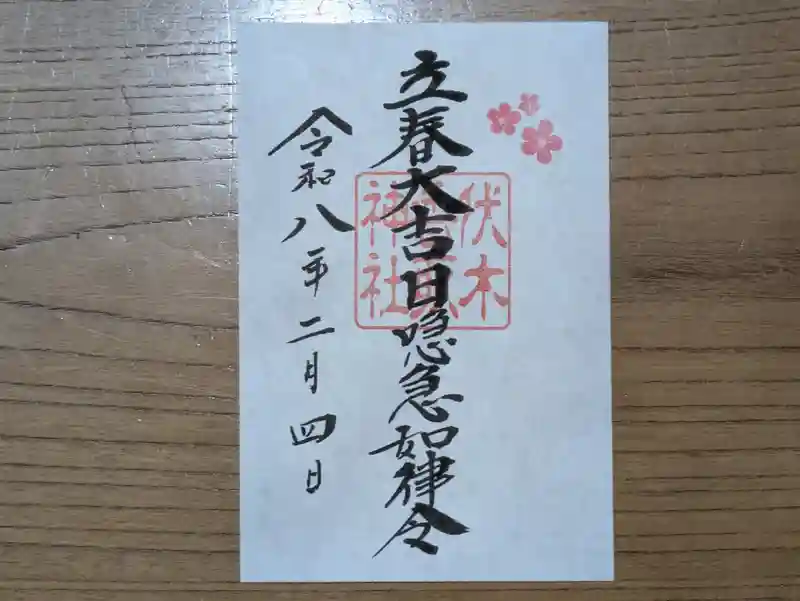 立春大吉日喼急如律令
令和八年二月四日
伏木
神社